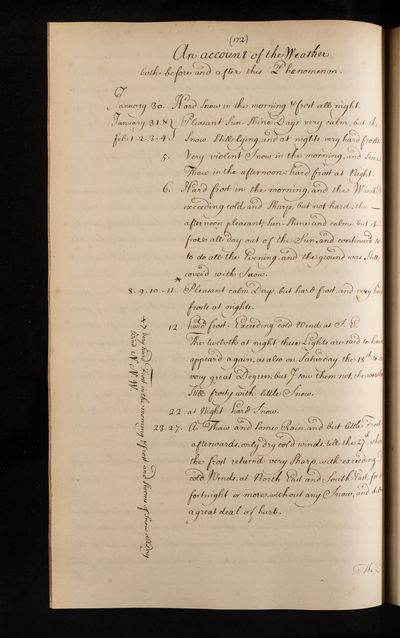 (172)
An account of the Weather
both before and after this Phenomenon.
January 30. Hard Snow in the morning & frost all night.
January 31. & Pleasant Sun-Shine Days very calm, but the
feb: 1. 2. 3. 4. Snow Still lying, and at nights very hard frosts.
5. Very violent Snow in the morning, and some
Thaw in the afternoon; hard frost at Night.
6. Hard frost in the morning, and the Wind
exceeding cold and Sharp, but not hard; the
afternoon pleasant Sun-Shine and calm but it
froze all day out of the Sun, and continued so
to do all the Evening, and the ground was Still
cover'd with Snow.
*
8. 9. 10. 11. Pleasant calm Days, but hard frost, and very hard
frosts at nights.
12. hard frost. Exceeding cold Wind at S. E.
The twelvth at night these Lights are said to have
appear'd again, as also on Saturday the 18th to a
very great Degree, but I saw them not, the weather
Still frosty with little Snow.
22. at Night hard Snow.
23. 27. A Thaw and some Rain, and but little Frost
afterwards, only dry cold winds, till the 27th, when
the frost return'd very Sharp, with exceeding
cold Winds, at North East and South East, for a
fortnight or more, without any Snow, and did
a great deal of hurt.
* 7 Very hard Frost in the morning & frost and storms of Snow all Day
Wind N. N. W.